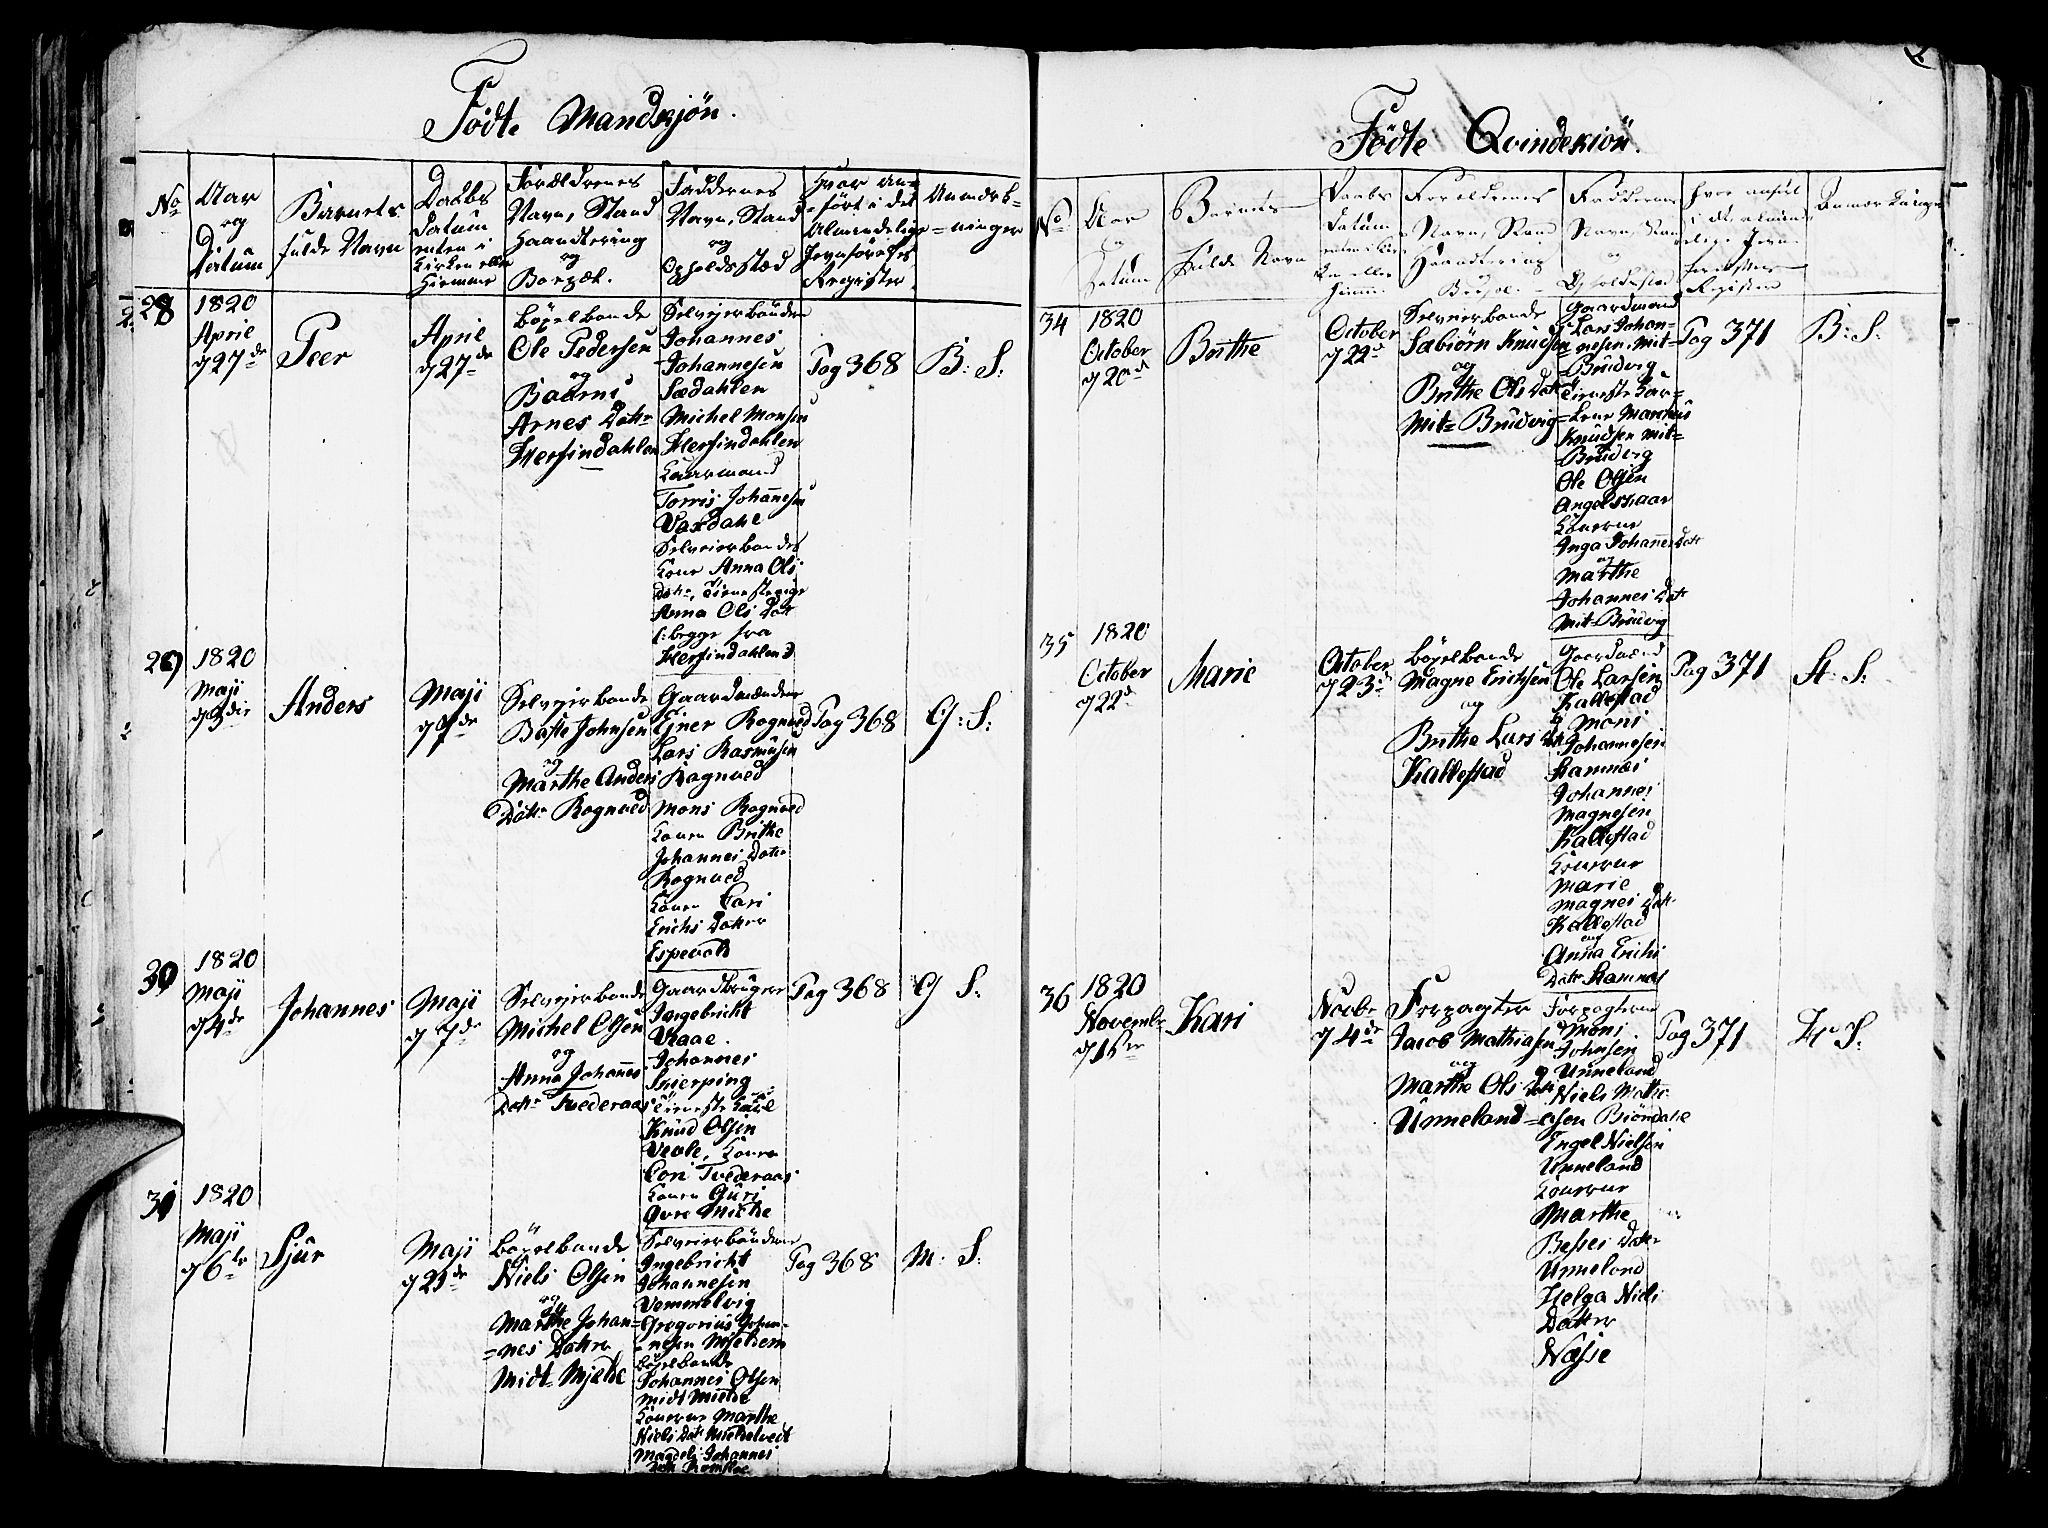 Födte Mandkjön.
No
Aar
og
Datum
Barnets
fulde Navn
Daabs
Datum
enten i
Kirken eller
Hiemme
Forældrenes
Navn, Stand
Haandtering
og
Boepæl.
Faddernes
Navn, Stand
og
Opholdsstæd
Hvor an-
-fört i det
Almindelige
Jevnförelses
Register.
Anmærk-
=ninger
28
1820
April
d 27de
Peer
April
d 27de
Böxelbonde
Ole Pedersen
og
Baarni
Arnes Datr
Herfindahlen
Selvejerbönderne
Johannes
Johannesen
Sædahlen
Michel Monsen
Herfindahlen
Kaarmand
Torris Johannesen
Vaxdahl
Selveierbondes
Kone Anna Ols
Datr, Tieneste Pige
Anna Ols Datr
/: begge fra
Herfindahlen
Pag 368
B: S:
29
1820
Maji
d 3die
Anders
Maji
d 7de
Selvejerbonde
Baste Johnsen
og
Marthe Anders
Datr Rognved
Gaardmændene
Ejner Rognved
Lars Rasmusen
Rognved
Mons Rognved
Konen Brithe
Johannes Datr
Rognved
Konen Cari
Erichs Datter
Espevold
Pag 368
G: S:
30
1820
Maji
d 4de
Johannes
Maji
d 7de
Selvejerbonde
Michel Olsen
og
Anna Johannes
Datr Tvederaas
Gaardbrugere
Ingebricht
Vraae.
Johannes
Skierping
Tieneste Karl
Knud Olsen
Veole, Konen
Cari Tvederaas
Konen Guri
Övre Mielde
Pag 368
G S:
31
1820
Maji
d 6te
Sjur
Maji
d 21de
Böxelbonde
Niels Olsen
og
Marthe Johan=
=nes Datter
Midt Mjelde
Selveierbönderne
Ingebricht
Johannesen
Vommelvig
Gregorius Johan-
-nesen Mieldem
böxelbonde
Johannes Olsen
Midt Mielde
Konerne Marthe
Niels Datr Mieldetvedt
Magdeli Johannes
Pag 368
M: S:
Födte Qvindekiön.
No
Aar
og
Datum
Barnets
fulde Navn
Daabs
Datum
enten i Kir
ken eller
Hiemme
Foreldrenes
Navn, Stand
Haandtering
og
Boepæl.
Faddernes
Navn, Stand
og
Opholdsstæd
Hvor anfört
i det almind
elige Jevn-
förelses
Register
Anmærkninger
34
1820
October
d 20de
Brithe
October
d 22de
Selveierbonde
Sæbiörn Knudsen
og
Brithe Ols Datr
Mit= Brudvig
Gaardmand
Lars Johan-
=nesen Mit=
=Brudvig
Tieneste Kar=
=lene Marthus
Knudsen Mit=
=Brudvig
Ole Olsen
Angelskaar
Konerne
Inga Johannes Datr
og
Marthe
Johannes Datr
Mit=Brudvig
Pag 371
B: S:
35
1820
October
d 22de
Marie
October
d 23de
böxelbonde
Magne Erichsen
og
Brithe Lars Datr
Kallestad
Gaardmænd
Ole Larsen
Kallestad
Mons
Johannesen
Hamnæs
Johannes
Magnesen
Kallestad
Konerne
Marie
Magnes Datr
Kallestad
og
Anna Erichs
Datr Hamnæs
Pag 371
H. S:
36
1820
Novembr
d 1ste
Kari
Novbr
d 4de
Forpagter
Jacob Mathiasen
og
Marthe Ols Datr
Unneland
Forpagterne
Mons
Johnsen
Unneland
Niels Mathi=
=esen Biöndahl
Engel Nielsen
Unneland
Konerne
Marthe
Besses Datr
Unneland
Helga Niels
Datter
Næsse
Pag 371
H: S: